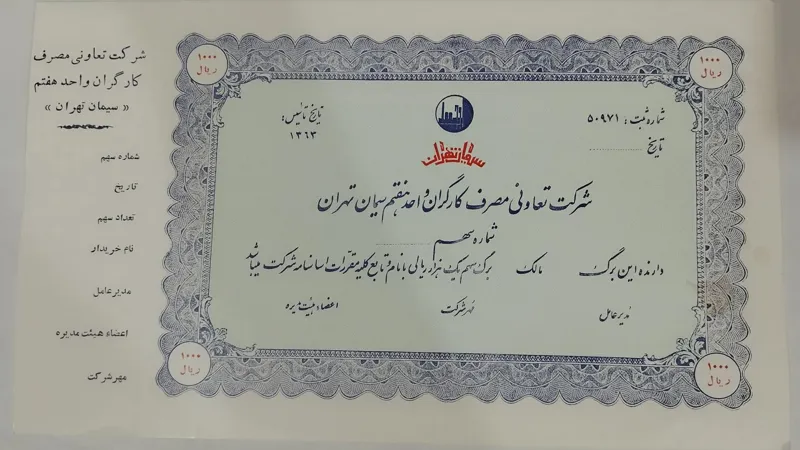 شرکت تعاونی مصرف
کارگران واحد هفتم
« سیمان تهران »
شماره سهم
تاریخ
تعداد سهم
نام خریدار
مدیرعامل
اعضاء هیئت مدیره
مهر شرکت
۱۰۰۰
ریال
۱۰۰۰
ریال
شماره ثبت: ۵۰۹۷۱
تاریخ
تاریخ تأسیس:
۱۳۶۳
سیمان تهران
شرکت تعاونی مصرف کارگران واحد هفتم سیمان تهران
شماره سهم
دارنده این برگ مالک برگ سهم یک هزار ریالی با نام و تابع کلیه مقررات اساسنامه شرکت میباشد
مدیر عامل مهر شرکت اعضاء هیئت مدیره
۱۰۰۰
ریال
۱۰۰۰
ریال